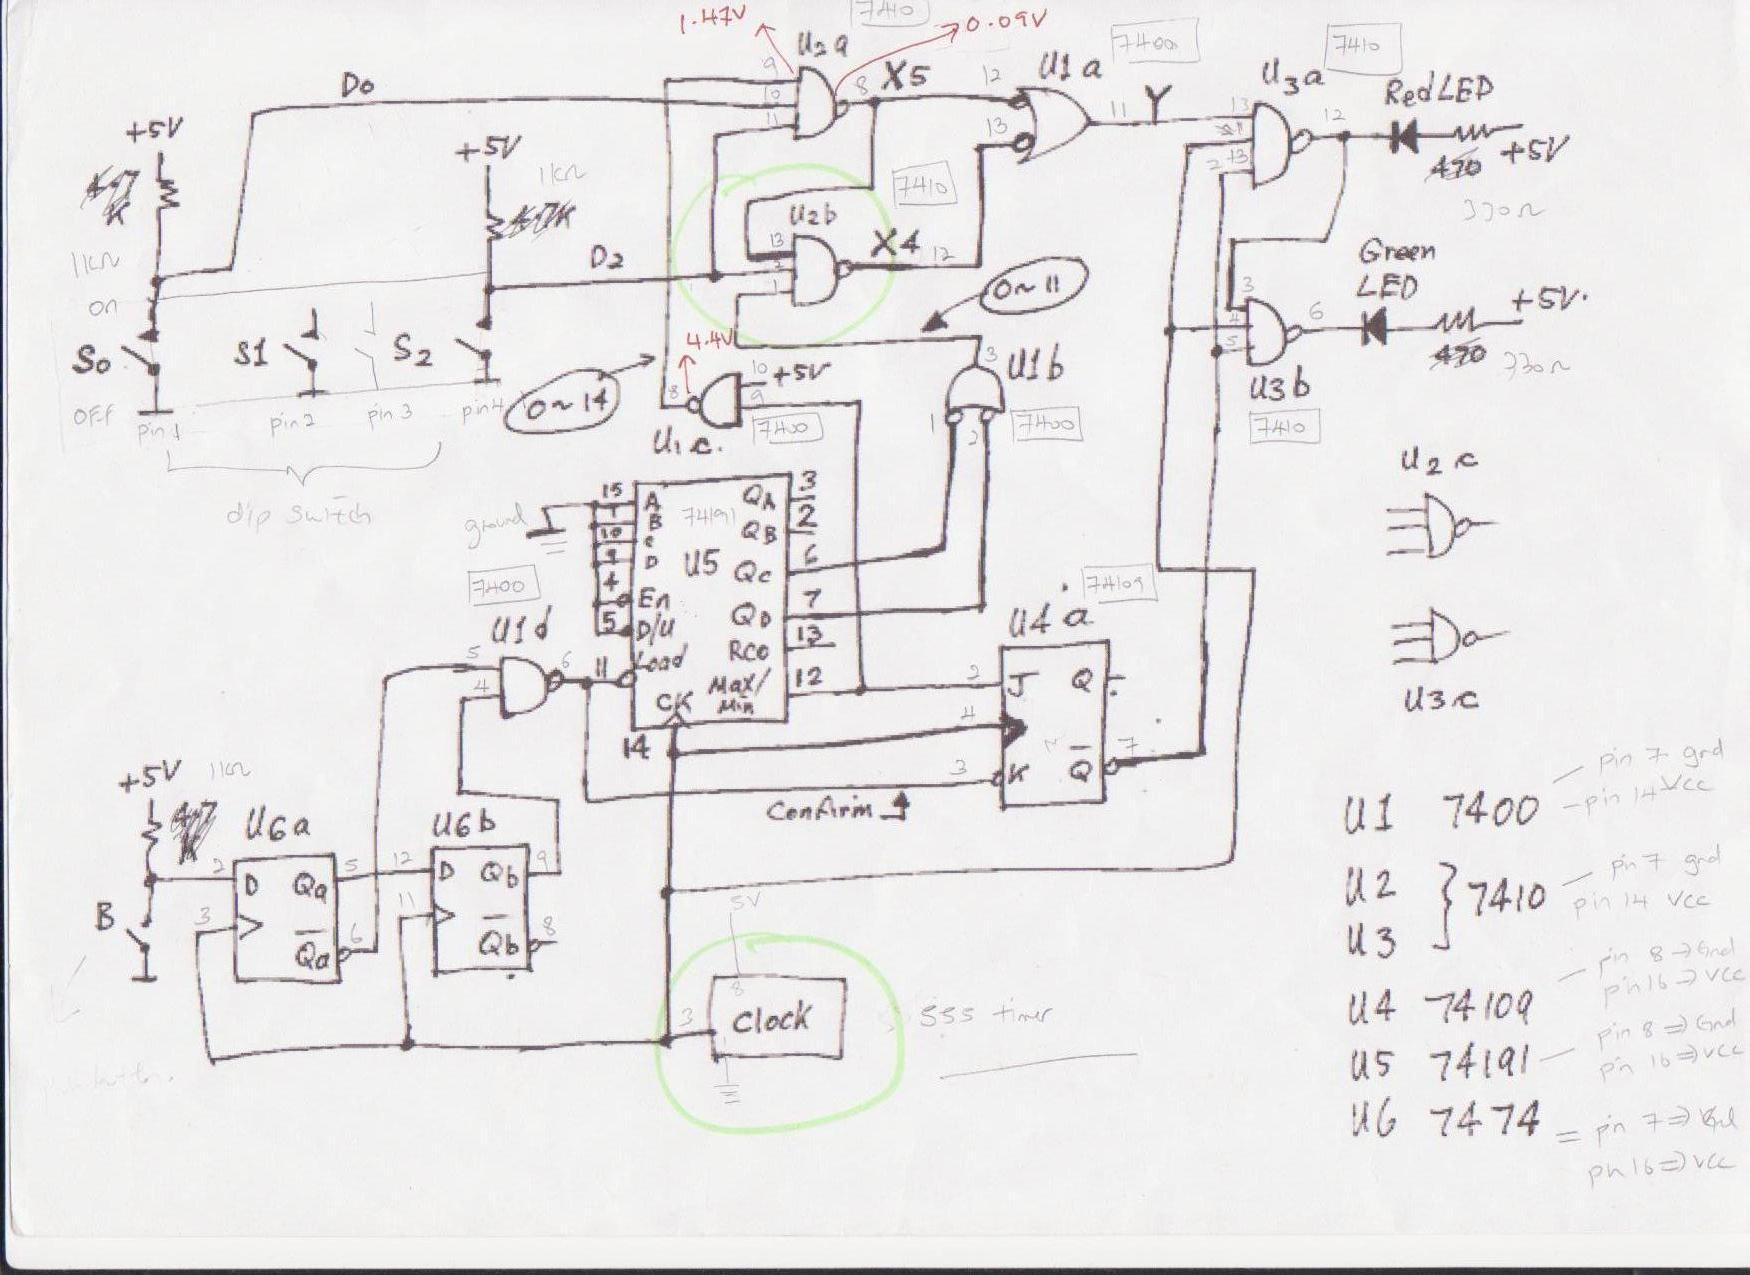 1.47V
7410
0.09V
U2a
9
10
11
8
X5
12
13
U1a
7400
11
Y
U3a
7410
13
2
12
Red LED
470
+5V
330Ω
D0
+5V
+5V
1kΩ
4.7K
1kΩ
on
D2
7410
U2b
13
2
1
X4
12
0~11
Green
LED
+5V.
3
4
5
6
470
330Ω
U3b
7410
S0
S1
S2
OFF
pin 1
pin 2
pin 3
pin 4
dip switch
4.4V
0~14
8
10
+5V
9
7400
U1c.
3
U1b
1
2
7400
U2c
U3c
ground
15
1
10
9
4
5
A
B
C
D
En
D/U
Load
CK
74191
U5
QA
QB
QC
QD
RCO
Max/
Min
3
2
6
7
13
12
7400
U1d
5
4
6
11
14
74109
U4a
2
4
3
J
Q
K
Q
7
Confirm
+5V
1kΩ
U6a
2
3
D
Qa
Qa
5
6
U6b
12
11
D
Qb
Qb
9
8
B
5V
8
3
Clock
555 timer
U1 7400
pin 7 gnd
pin 14 Vcc
U2
U3
7410
pin 7 gnd
pin 14 Vcc
U4 74109
pin 8 => Gnd
pin 16 => Vcc
U5 74191
pin 8 => Gnd
pin 16 => Vcc
U6 7474
= pin 7 =>
pin 16 => Vcc